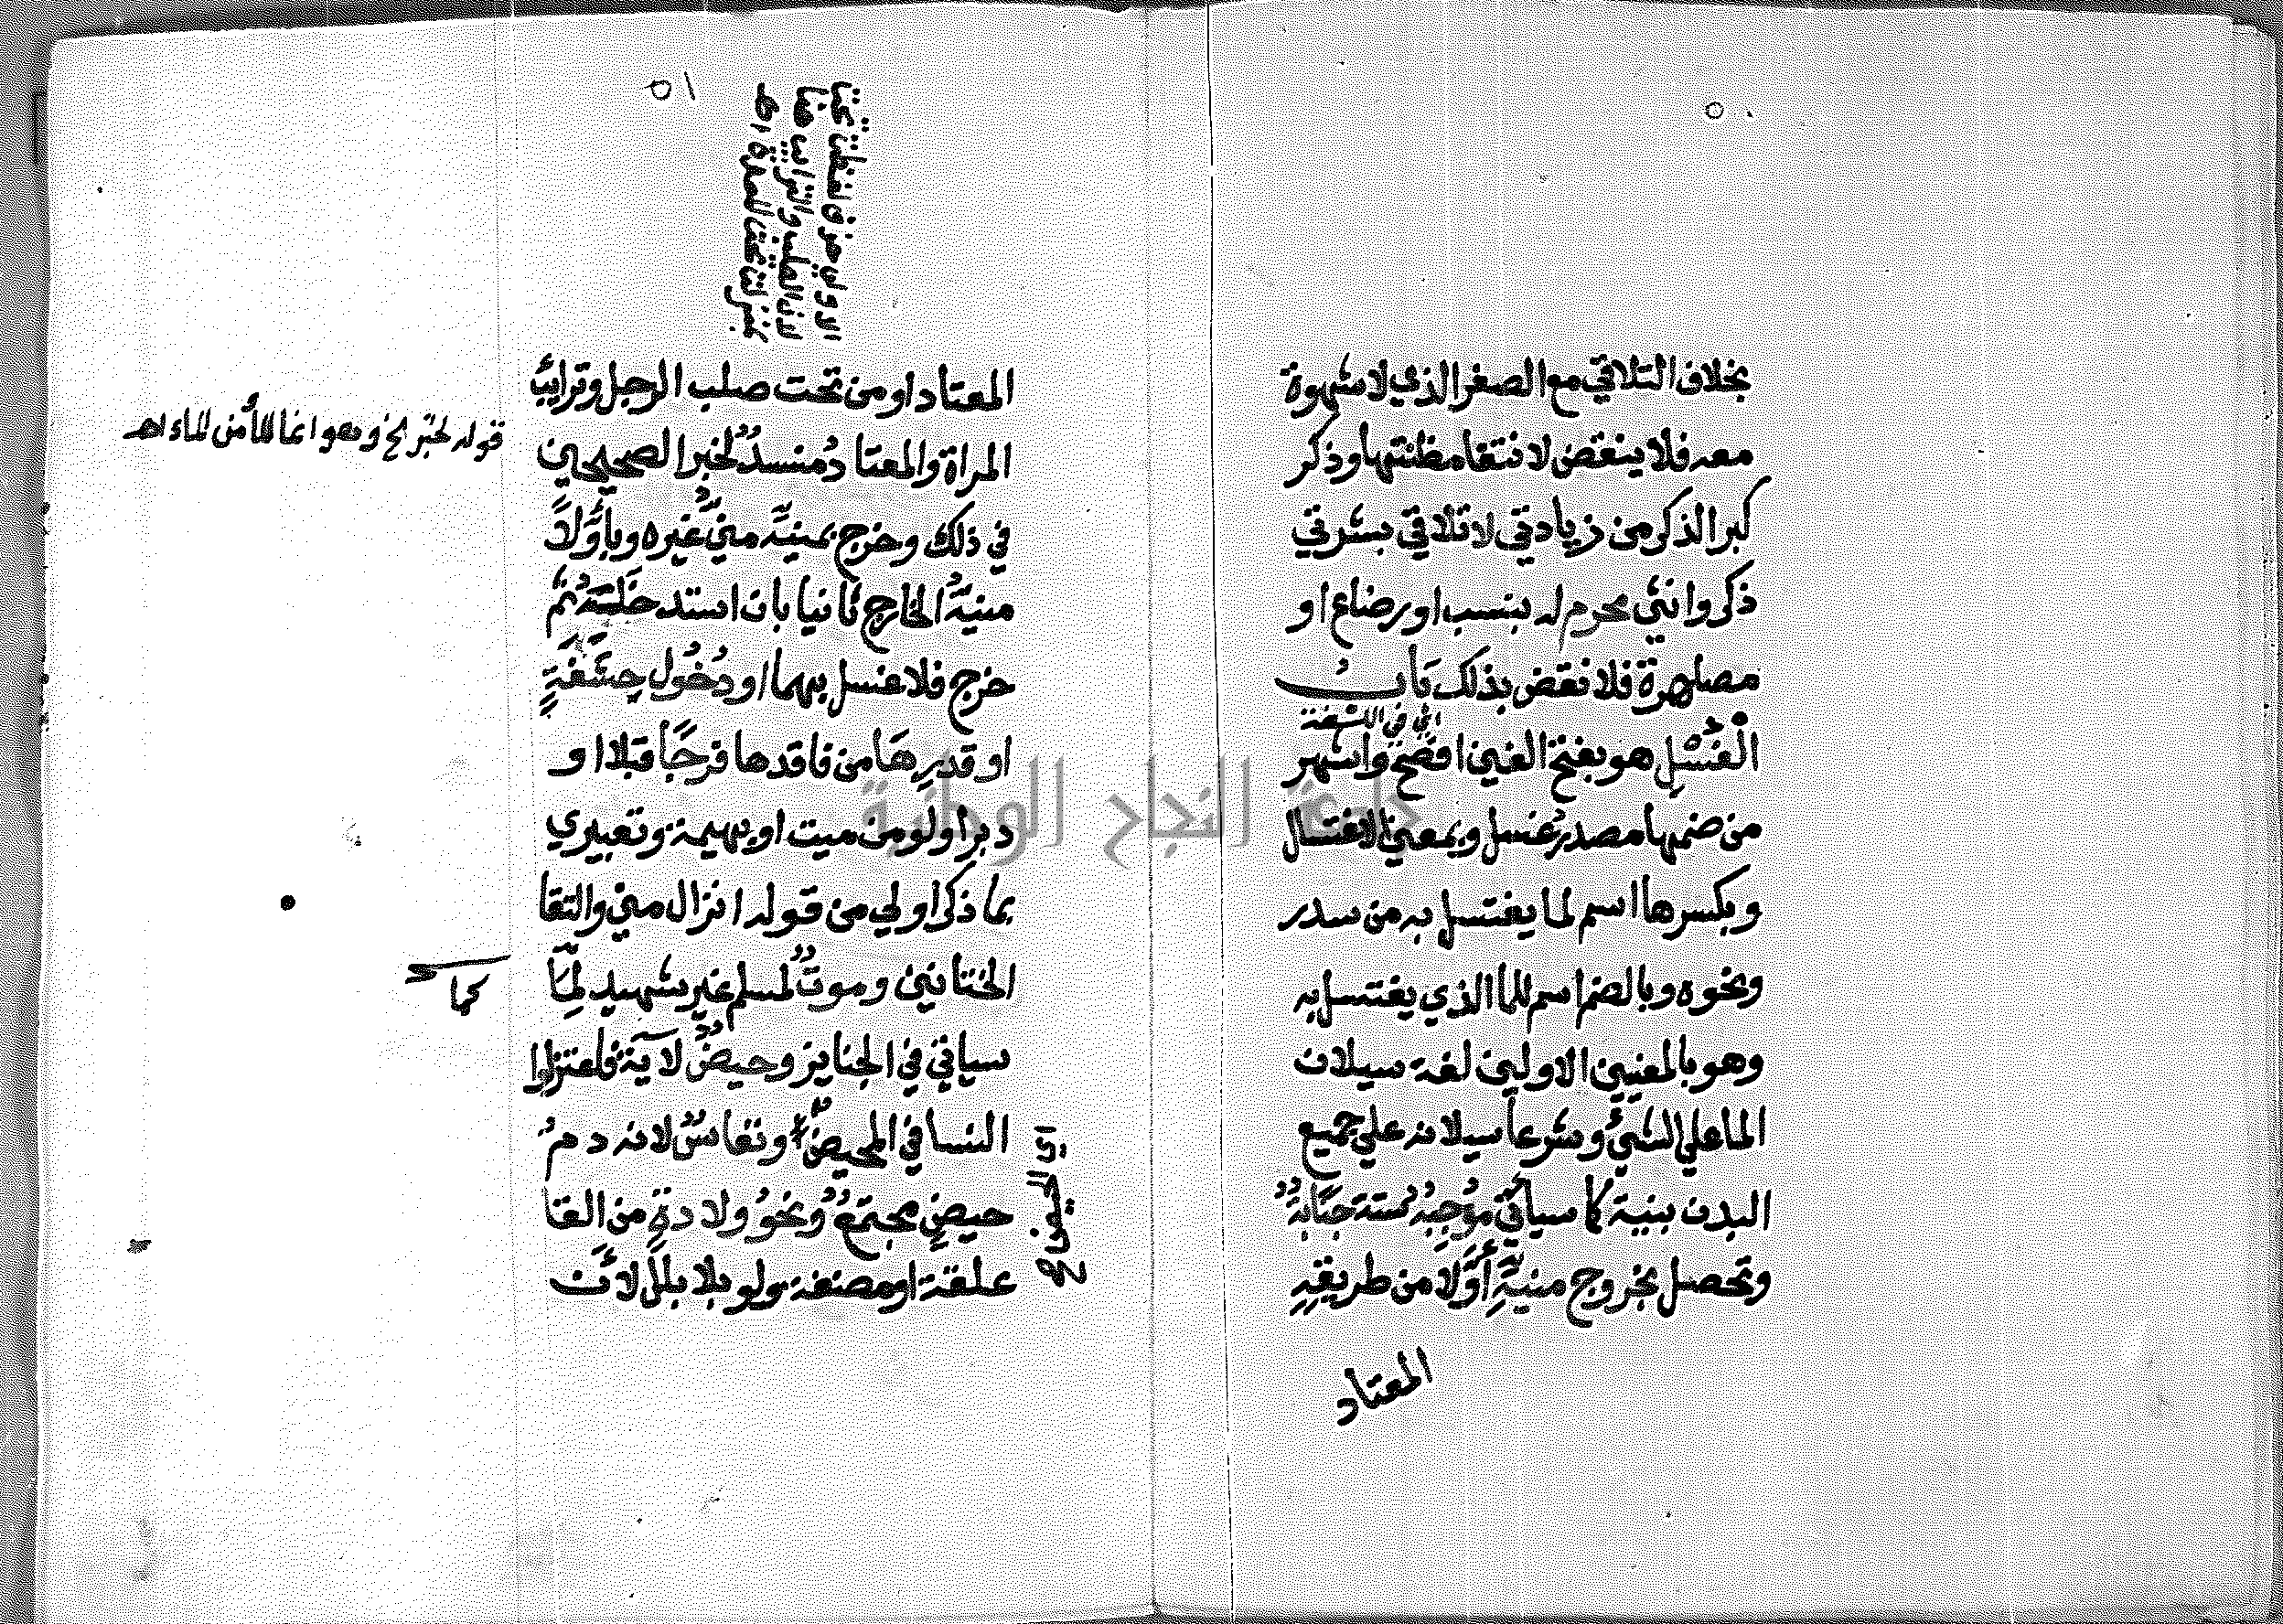 ٥٠
بخلاف التلاقي مع الصغر الذي لا شهوة
معه فلا ينقض لانتفا مظنتها وذكر
كبر الذكر من زيادتي لا تلاقي بشرتي
ذكر وانثي محرم له بنسب او رضاع او
مصاهرة فلا نقض بذلك بابُ
اي في اللغة
الغسل هو بفتح الغين افصح واشهر
من ضمها مصدر غسل وبمعني الاغتسال
وبكسرها اسم لما يغتسل به من سدر
ونحوه وبالضم اسم للما الذي يغتسل به
وهو بالمعنيين الاولين لغة سيلان
الما علي الشيء وشرعا سيلانه علي جميع
البدن بنية كما سيأتي موجبه ستة جنابة
وتحصل بخروج منيّه أوّلا من طريقه
المعتاد
٥١
المعتاد او من تحت صلب الرجل وترايب
المراة والمعتاد منسدٌ لخبر الصحيحين
في ذلك وخرج بمنيّه منيّ غيره وبأوّلاً
منيّهُ الخارج ثانيا بان استدخلته ثم
خرج فلا غسل بهما او دخول حشفةٍ
او قدرِهَا من فاقدها فرجًا قبلا او
دبرا ولو من ميت او بهيمة وتعبيري
بما ذكر اولي من قوله انزال مني والتقا
الختانين وموتٌ لمسلم غير شهيد لِمَا
سياتي في الجنايز وحيضٌ لآية فاعتزلوا
النسا في المحيض ونفاسٌ لانه دمُ
حيضٍ مجتمعٌ ونحوُ ولادةٍ من القا
علقة او مضغة ولو بلا بلل لأن
قوله لخبر الخ وهو انما الما من الماء اهـ
كما
اي الحيض